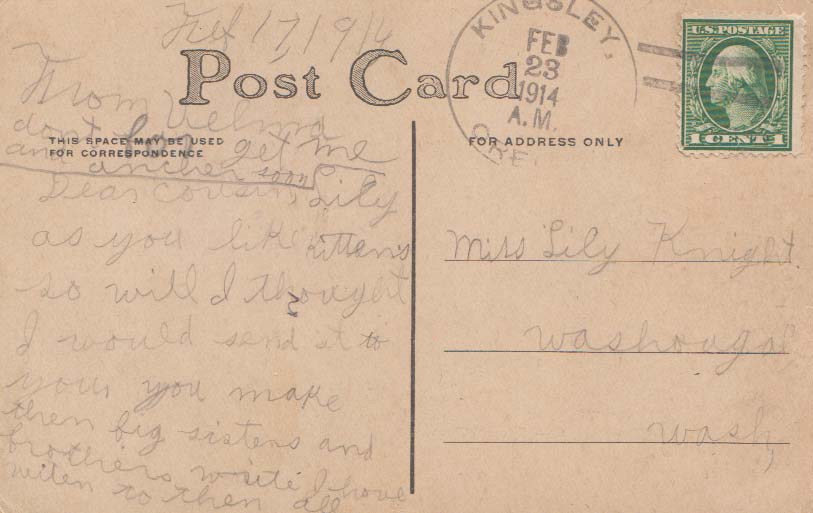 Feb 17, 1914
Post Card
From Velma
dont for get me
THIS SPACE MAY BE USED
FOR CORRESPONDENCE
and ancher soon
Dear Cousin Lily
as you like kittens
so will I thought
I would send it to
you, you make
then big sisters and
brothers write I have
writen to then all
KINGSLEY,
FEB
23
1914
A.M.
ORE.
U.S. POSTAGE
1 CENT 1
FOR ADDRESS ONLY
Miss Lily Knight
washougal
wash,